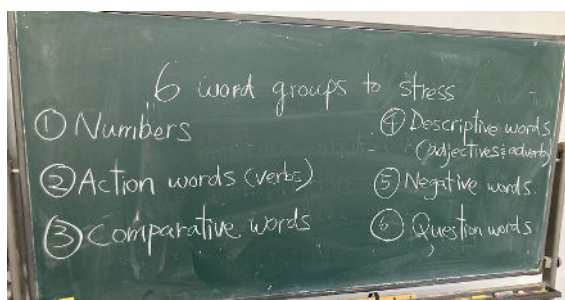 6 word groups to stress
① Numbers
② Action words (verbs)
③ Comparative words
④ Descriptive words
(adjectives & adverb)
⑤ Negative words.
⑥ Question words